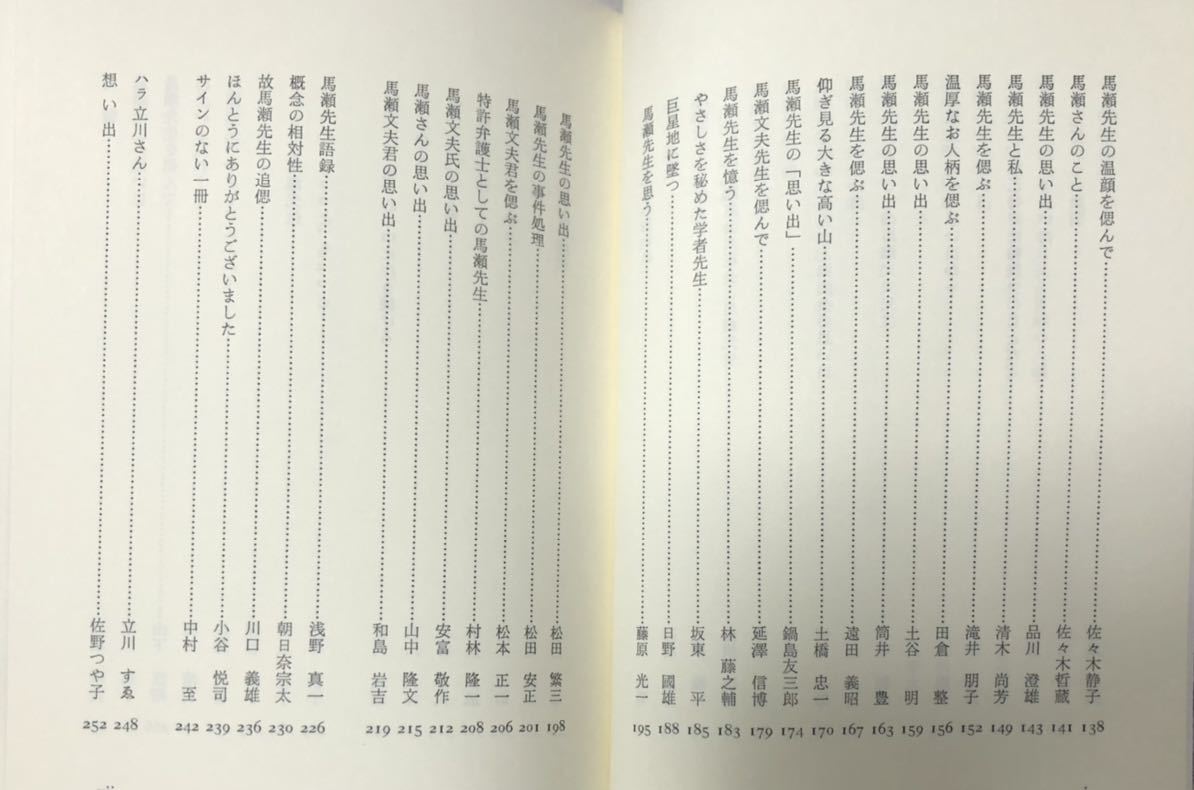 馬瀬先生の温顔を偲んで……佐々木静子 138
馬瀬さんのこと……佐々木哲蔵 141
馬瀬先生の思い出……品川 澄雄 143
馬瀬先生と私……清木 尚芳 149
馬瀬先生を偲ぶ……滝井 朋子 152
温厚なお人柄を偲ぶ……田倉 整 156
馬瀬先生の思い出……土谷 明 159
馬瀬先生の思い出……筒井 豊 163
馬瀬先生を偲ぶ……遠田 義昭 167
仰ぎ見る大きな高い山……土橋 忠一 170
馬瀬先生の「思い出」……鍋島友三郎 174
馬瀬文夫先生を偲んで……延澤 信博 179
馬瀬先生を憶う……林 藤之輔 183
やさしさを秘めた学者先生……坂東 平 185
巨星地に墜つ……日野 國雄 188
馬瀬先生を思う……藤原 光一 195
馬瀬先生の思い出……松田 繁三 198
馬瀬先生の事件処理……松田 安正 201
馬瀬文夫君を偲ぶ……松本 正一 206
特許弁護士としての馬瀬先生……村林 隆一 208
馬瀬文夫氏の思い出……安富 敬作 212
馬瀬さんの思い出……山中 隆文 215
馬瀬文夫君の思い出……和島 岩吉 219
馬瀬先生語録……浅野 真一 226
概念の相対性……朝日奈宗太 230
故馬瀬先生の追偲……川口 義雄 236
ほんとうにありがとうございました……小谷 悦司 239
サインのない一冊……中村 至 242
ハラ立川さん……立川 すゑ 248
想い出……佐野つや子 252